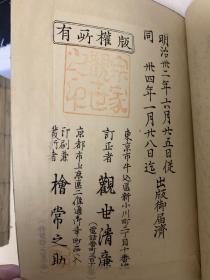 明治卅二年六月廿五日從
同　卅四年一月廿八日迄
出版御届濟
版權所有
東京市牛込區新小川町二丁目十番地
訂正者　觀世清廉
京都市上京區二條通
印刷兼
發行者　檜常之助